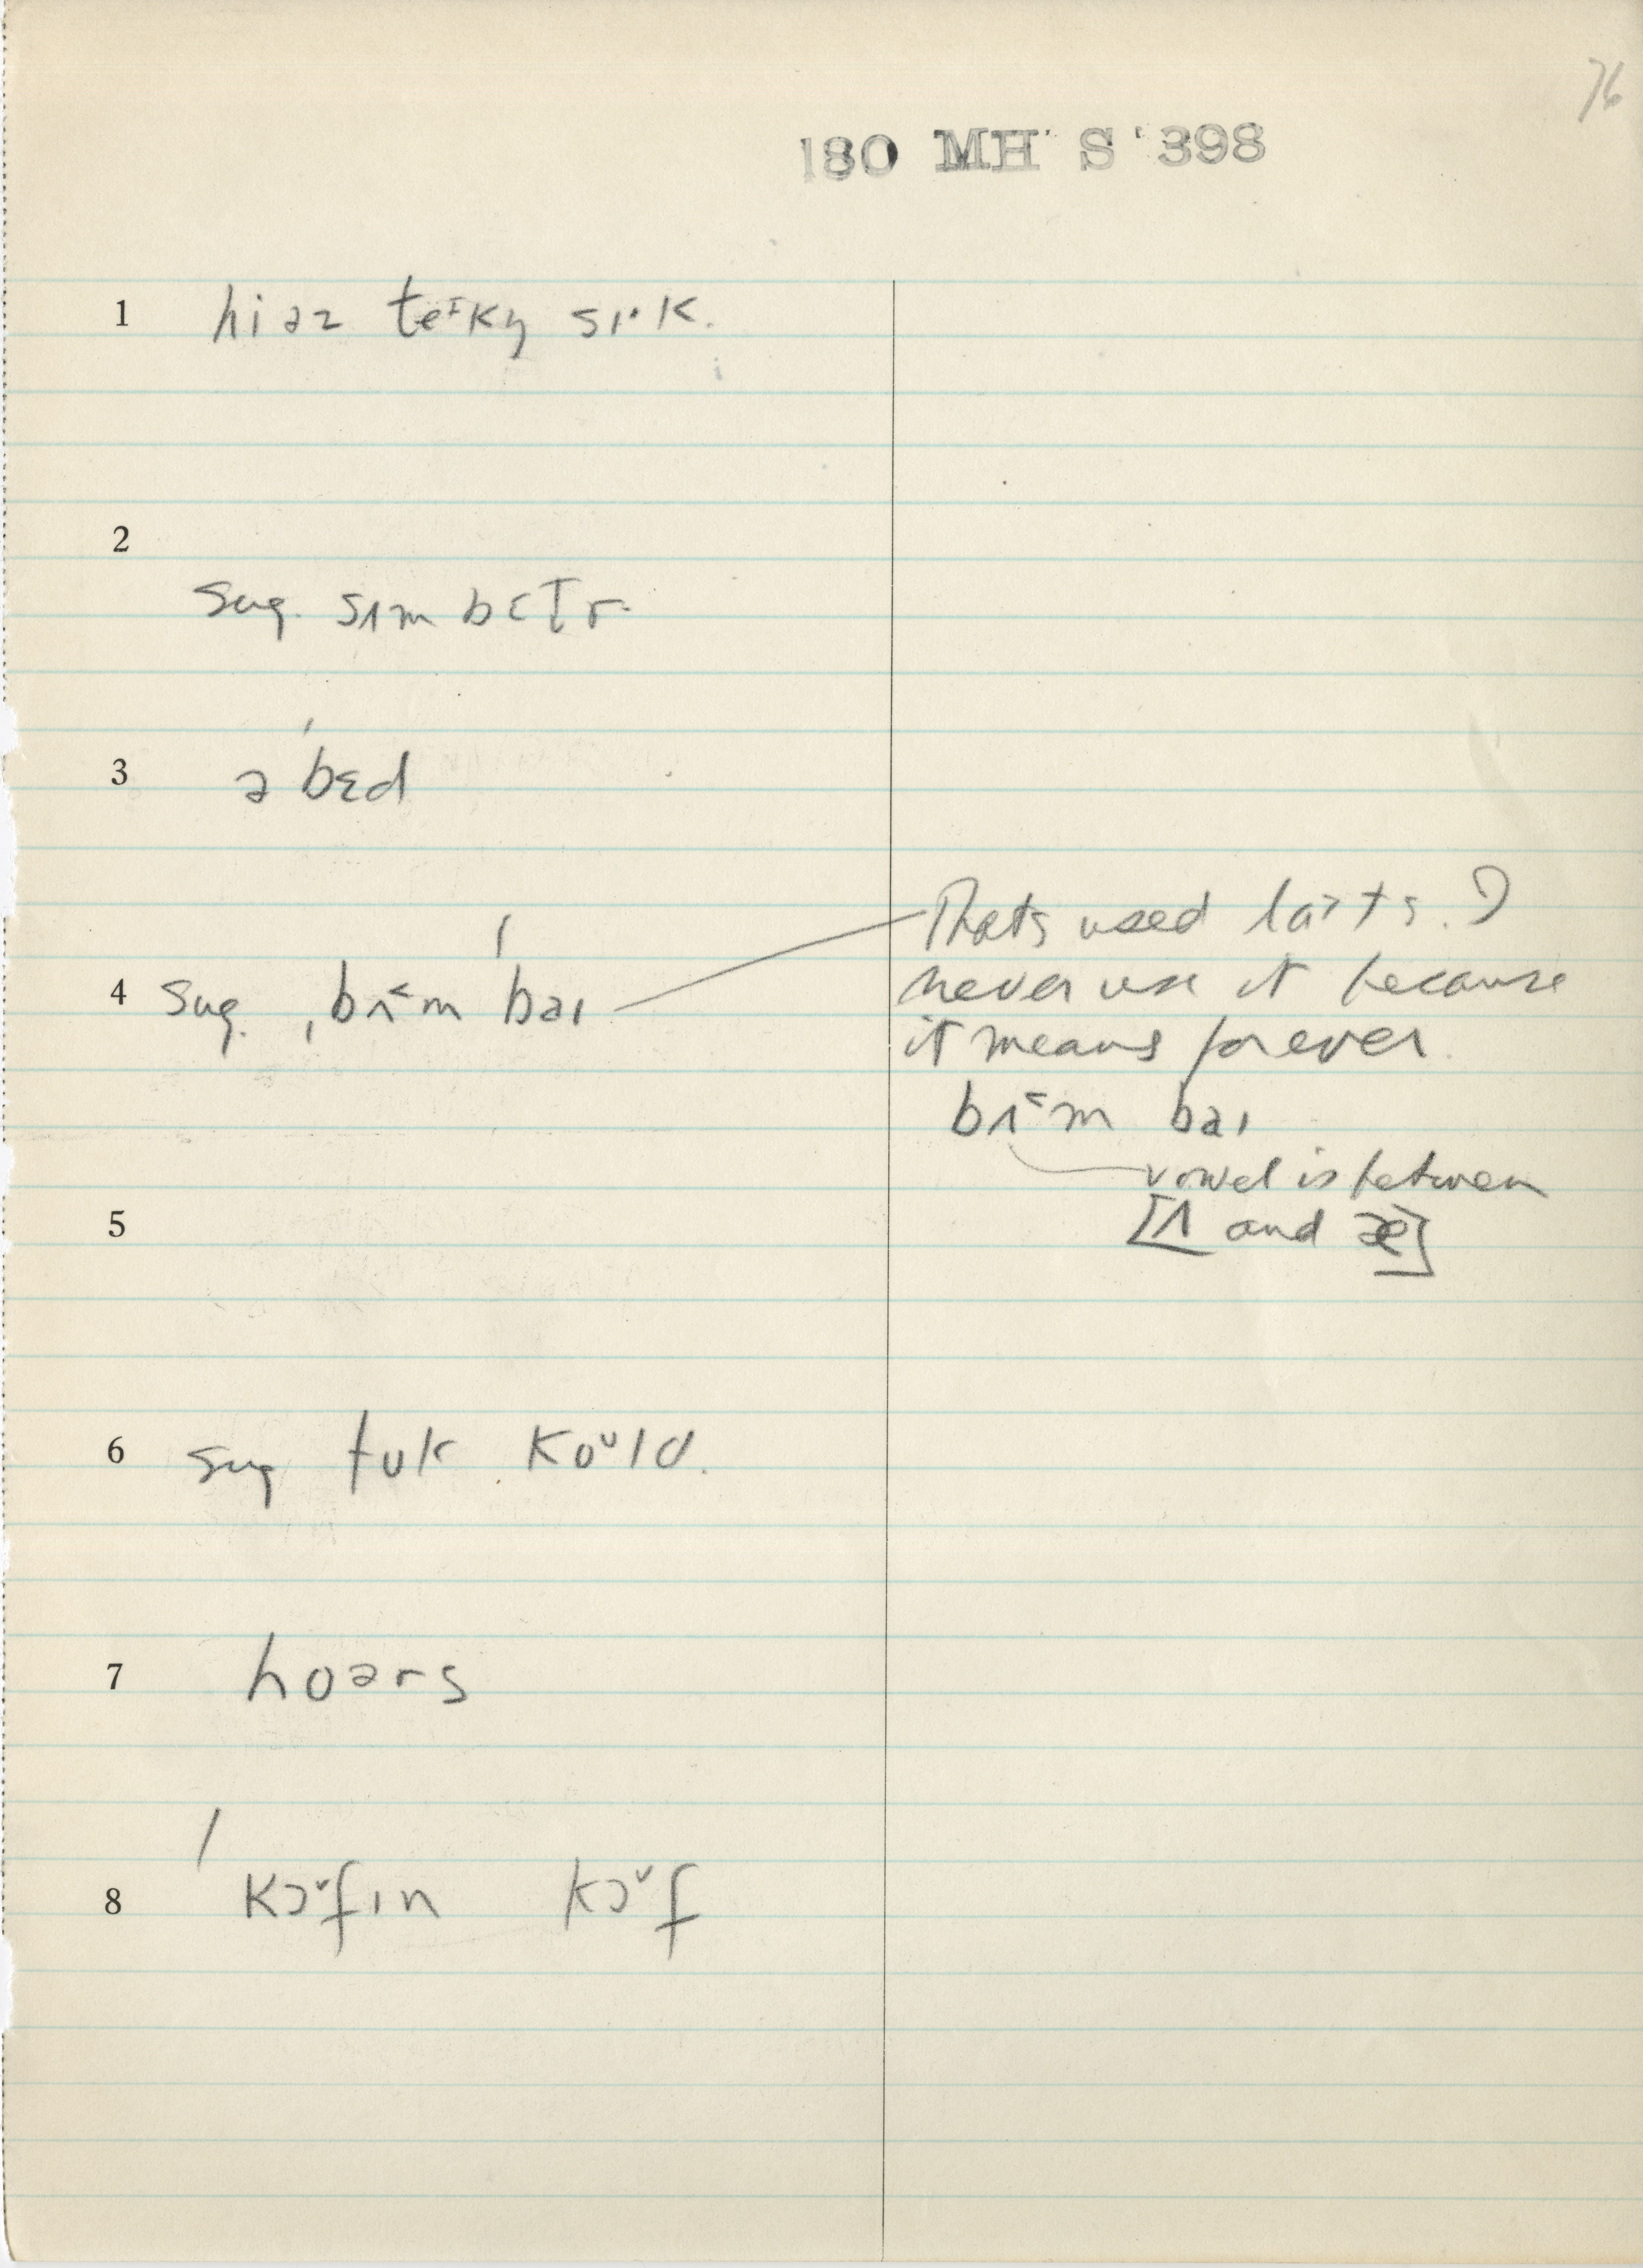 76
180 MH S 398
1 hiəz teᶦkn̩ sɪ·k.
2
sug. sʌm bɛt̬r
3 ə ˈbɛd
4 sug. ˌbʌ˂m ˈbaɪ
Thats used lots. I
never use it because
it means forever.
bʌ˂m baɪ
vowel is between
[ʌ and æ]
5
6 sug tʊk koᵘld.
7 hoərs
8 / kɔ˅fɪn kɔ˅f